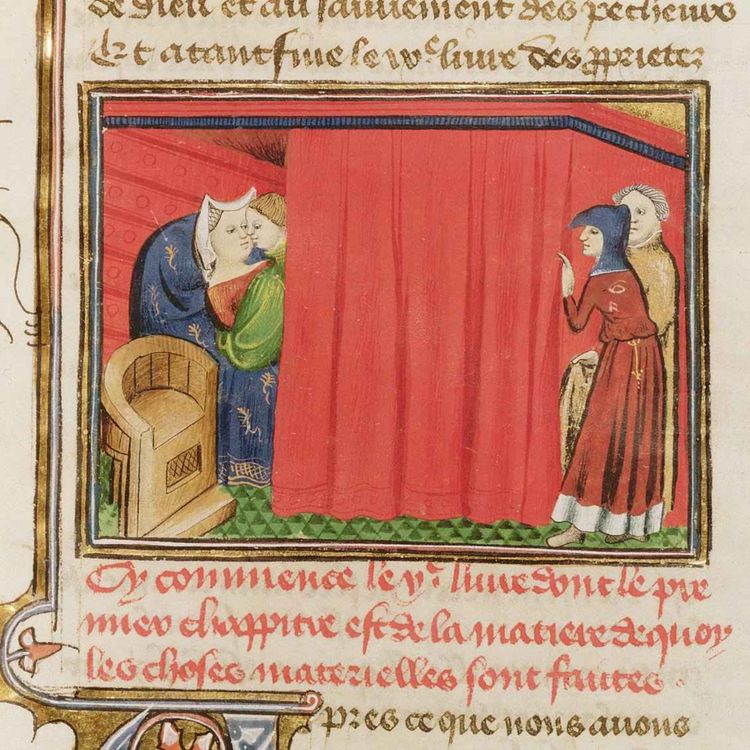 de dieu et au sauuement des pecheurs
Et atant fine le ixe liure des pprietez
Cy commence le xe liure dont le pre
mier chappitre est de la matiere de quoy
les choses materielles sont faites
pres ce que nous auons